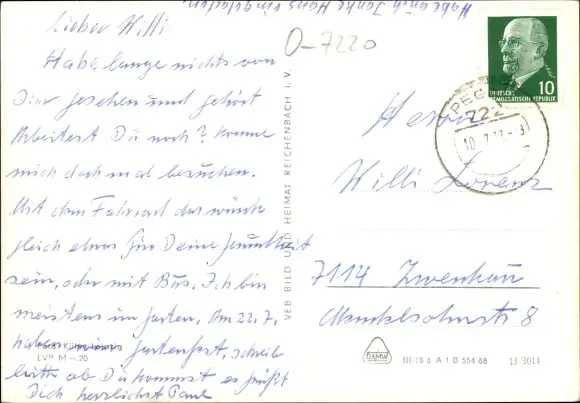 Habe auch Tante Hans eingeladen.
Lieber Willi
Habe lange nichts von
Dir gesehen und gehört
Arbeitest Du noch? komme
mich doch mal besuchen.
Mit dem Fahrrad das würde
gleich etwas für Deine Gesundheit
sein, oder mit Bus. Ich bin
meistens im Garten. Am 22.7.
haben wir Gartenfest, schreib
bitte ob Du kommst es grüßt
Dich herzlichst Paul
EVP M – 20
VEB BILD UND HEIMAT REICHENBACH I. V.
O-7220
DEUTSCHE
DEMOKRATISCHE REPUBLIK
10
PEGAU
722
Herrn
Willi Lorenz
7114 Zwenkau
Mendelsohnstr 8
DAMW
III 18 6 A 1 B 554 68
13/3014